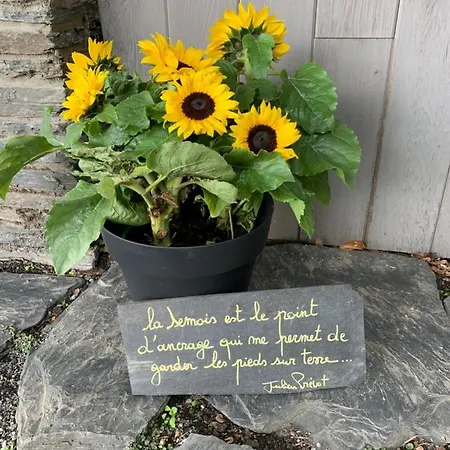 la Semois est le point
d'ancrage qui me permet de
garder les pieds sur terre...
Julien Prévot